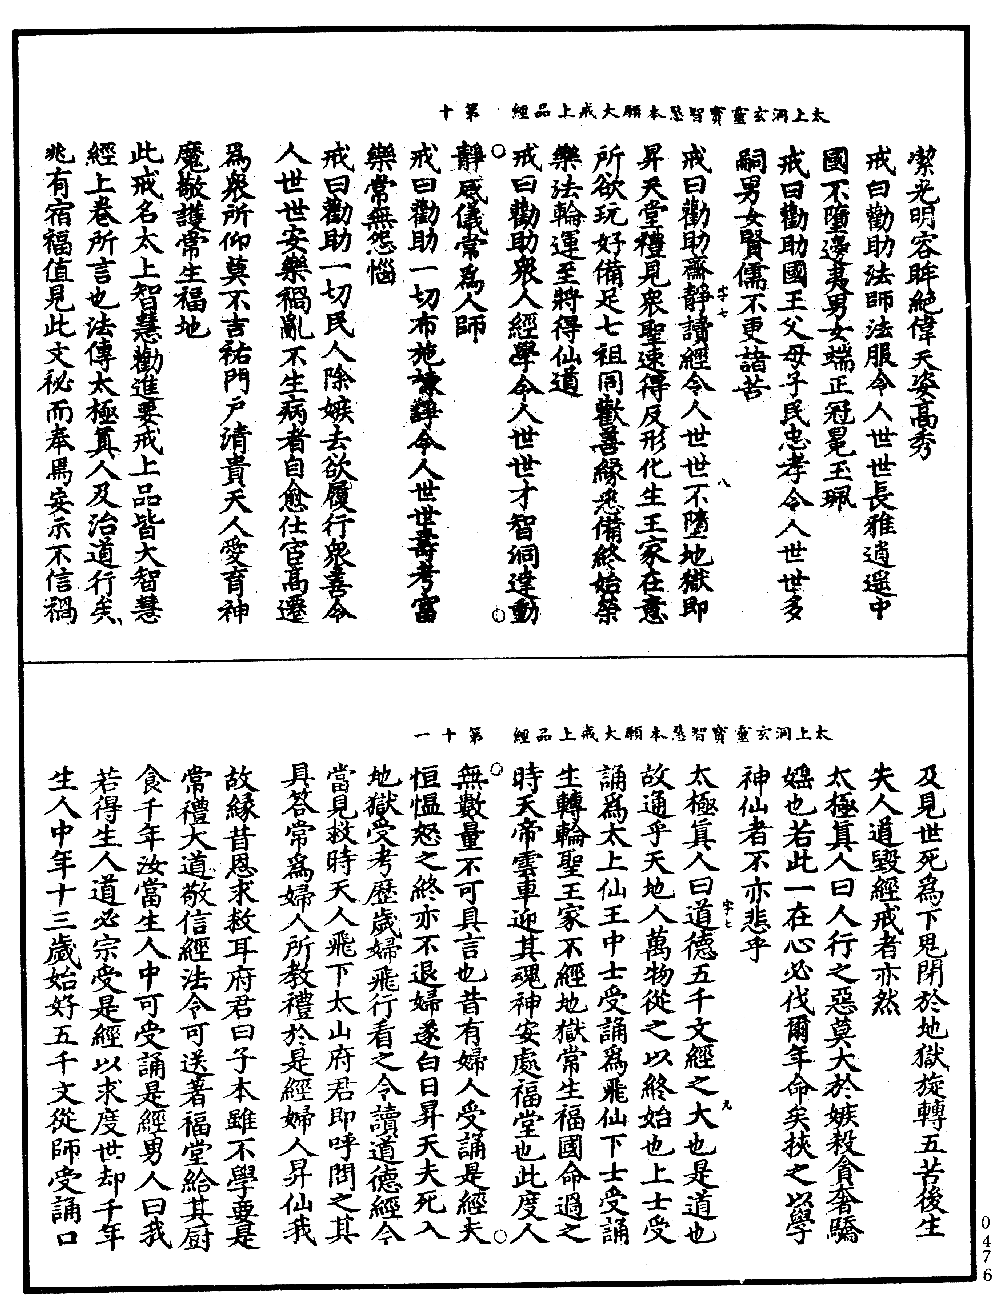 太上洞玄靈寶智慧本願大戒上品經　第十
潔光明容眸絕偉天姿高秀
戒曰勸助法師法服令人世世長雅逍遥中
國不墮邊夷男女端正冠冕玉珮
戒曰勸助國王父母子民忠孝令人世世多
嗣男女賢儒不更諸苦
戒曰勸助齋靜讀經令人世世不墮地獄即
昇天堂禮見衆聖速得反形化生王家在意
所欲玩好備足七祖同歡善緣悉備終始榮
樂法輪運至將得仙道
戒曰勸助衆人經學令人世世才智洞達動
靜威儀常爲人師
戒曰勸助一切布施諫諍令人世世壽考富
樂常無怨惱
戒曰勸助一切民人除嫉去欲履行衆善令
人世世安樂禍亂不生病者自愈仕宦高遷
爲衆所仰莫不吉祐門戶清貴天人愛育神
魔敬護常生福地
此戒名太上智慧勸進要戒上品皆大智慧
經上卷所言也法傳太極真人及治道行矣
兆有宿福值見此文祕而奉焉妄示不信禍
字七
八
太上洞玄靈寶智慧本願大戒上品經　第十一
及見世死爲下鬼閉於地獄旋轉五苦後生
失人道毀經戒者亦然
太極真人曰人行之惡莫大於嫉殺貪奢驕
婬也若此一在心必伐爾年命矣挾之以學
神仙者不亦悲乎
太極真人曰道德五千文經之大也是道也
故通乎天地人萬物從之以終始也上士受
誦爲太上仙王中士受誦爲飛仙下士受誦
生轉輪聖王家不經地獄常生福國命過之
時天帝雲車迎其魂神安處福堂也此度人
無數量不可具言也昔有婦人受誦是經夫
恒愠怒之終亦不退婦遂白日昇天夫死入
地獄受考歷歲婦飛行看之令讀道德經令
當見救時天人飛下太山府君即呼問之其
具答常爲婦人所教禮於是經婦人昇仙我
故緣昔恩求救耳府君曰子本雖不學要是
常禮大道敬信經法令可送著福堂給其厨
食千年汝當生人中可受誦是經男人曰我
若得生人道必宗受是經以求度世却千年
生人中年十三歲始好五千文從師受誦口
字七
元
0476